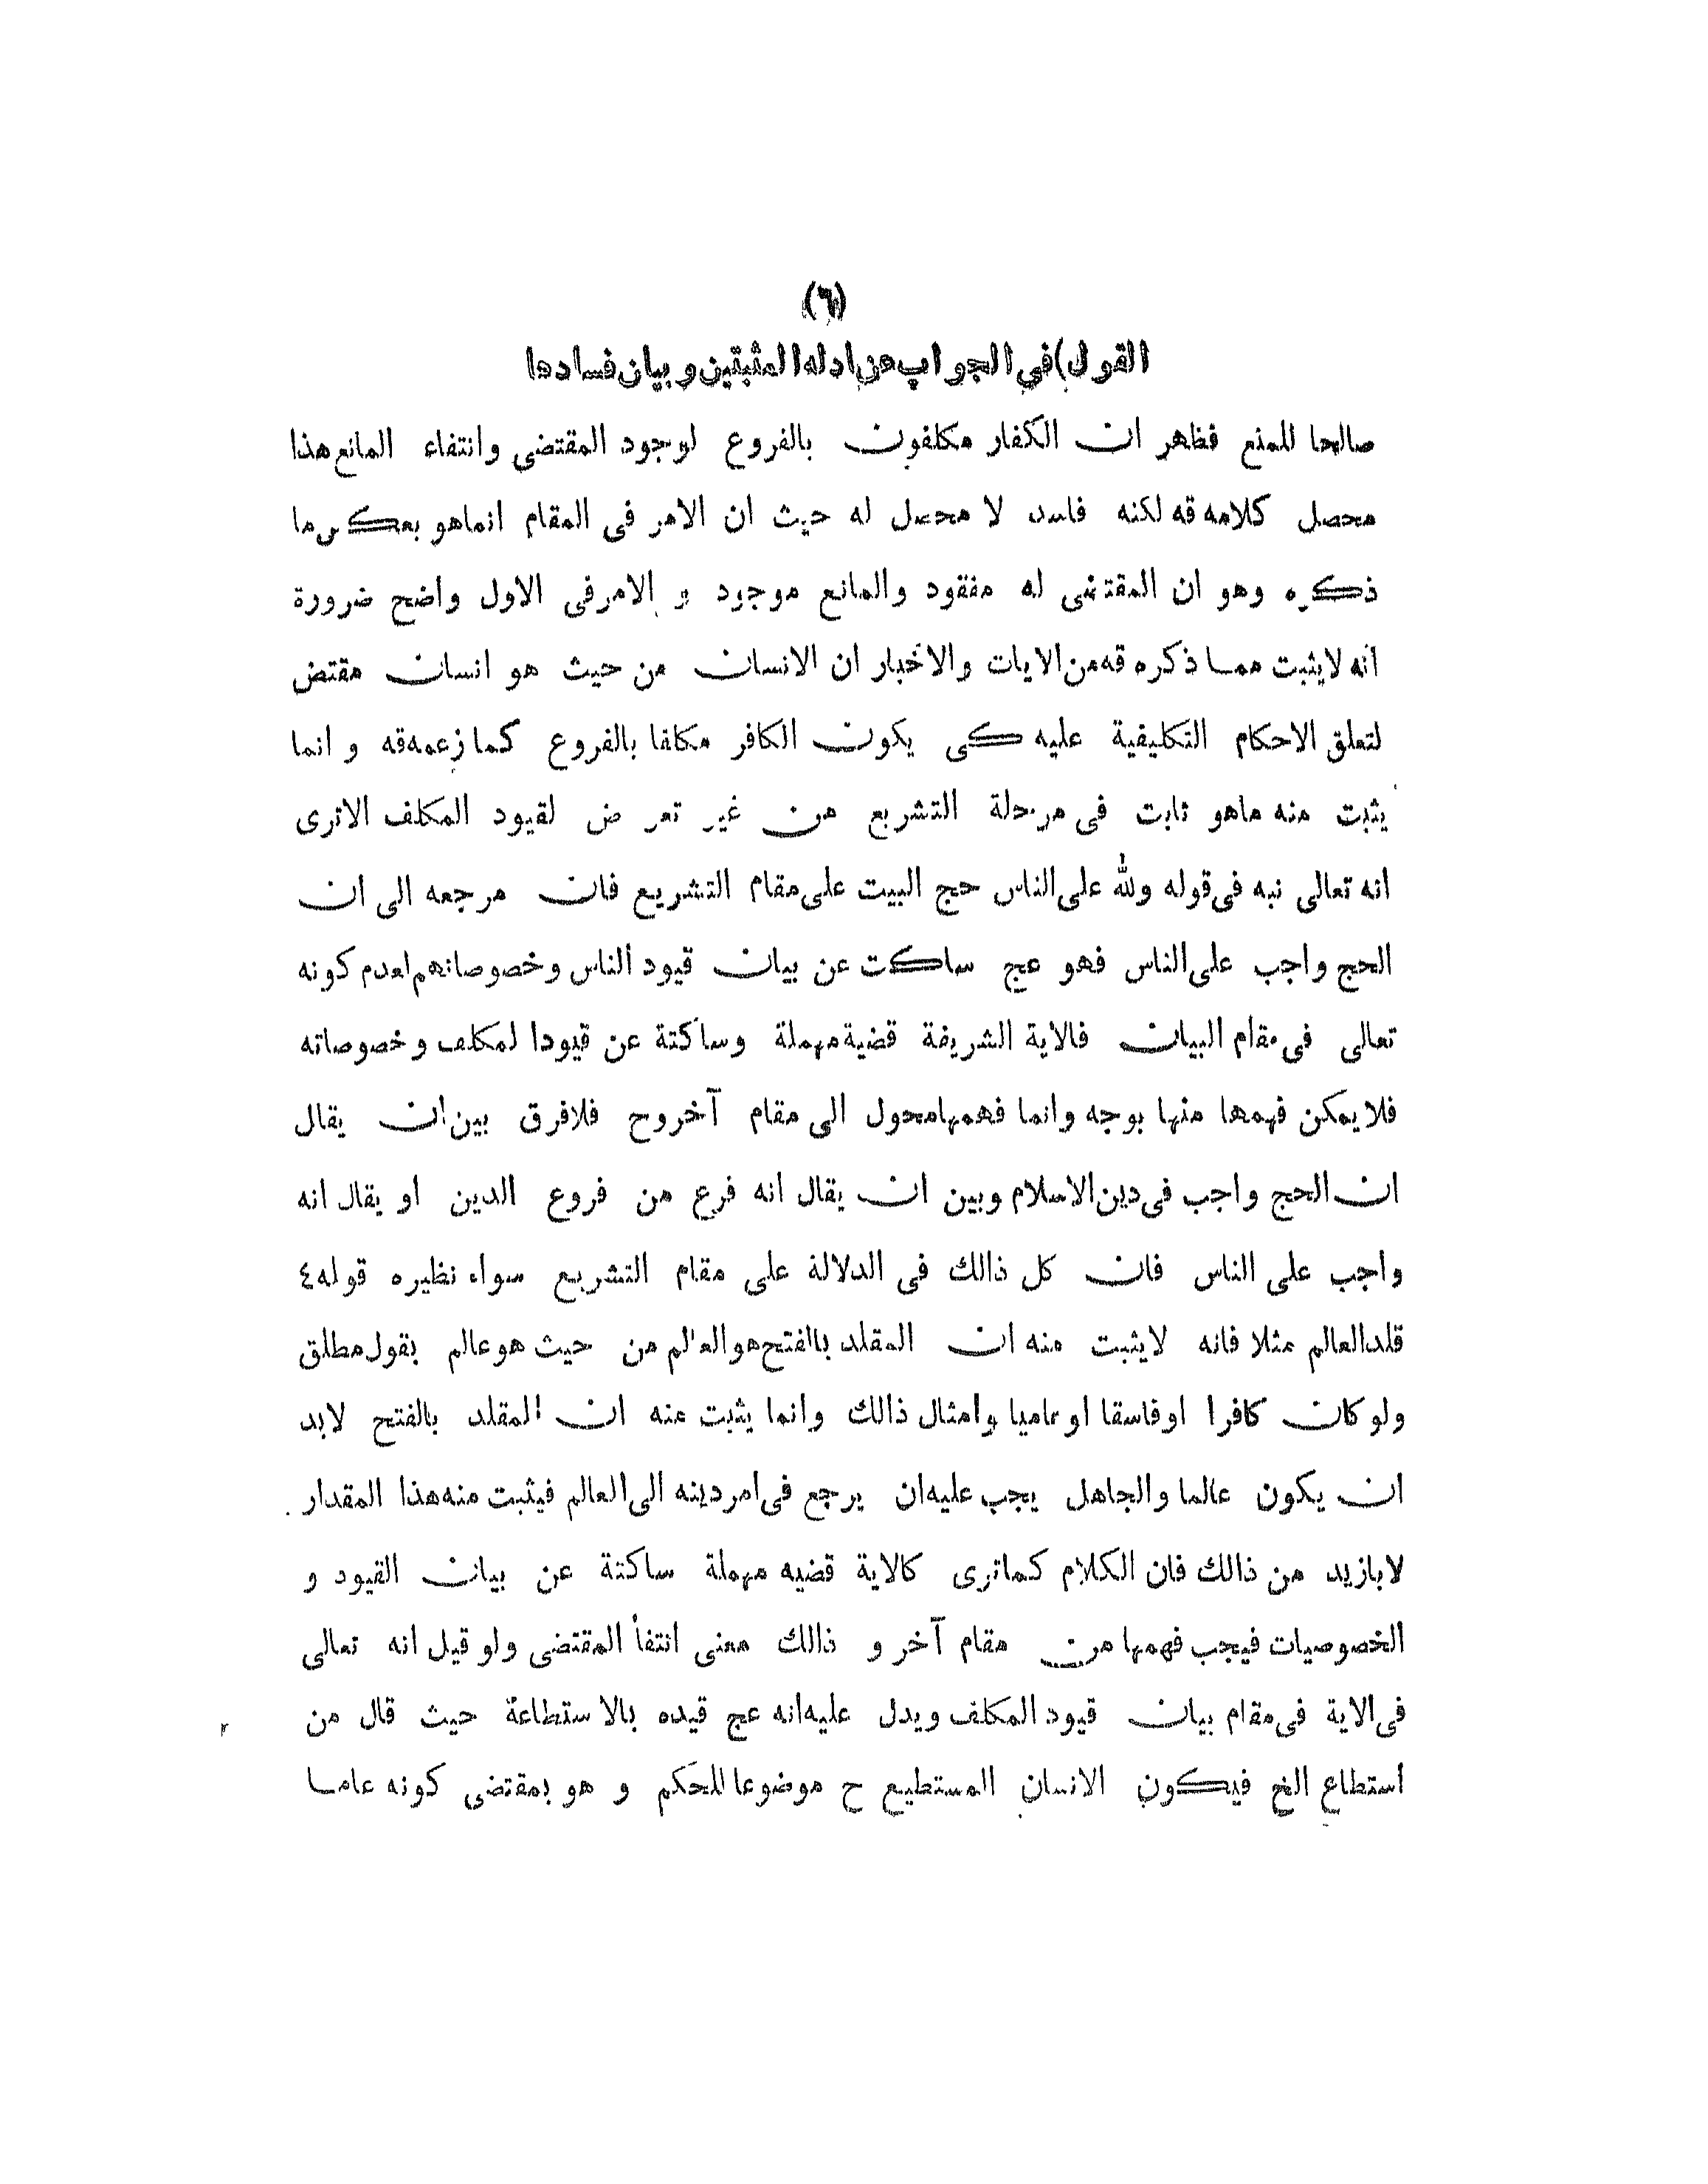 (٦)
القول) في الجواب عن ادله المثبتين و بيان فسادها
صالحا للمنع فظاهر ان الكفار مكلفون بالفروع لوجود المقتضى وانتفاء المانع هذا
محصل كلامه قه لكنه فاسد لا محصل له حيث ان الامر فى المقام انماهو بعكس ما
ذكره وهو ان المقتضى له مفقود والمانع موجود و الامر فى الاول واضح ضرورة
انه لايثبت مما ذكره قه من الايات والاخبار ان الانسان من حيث هو انسان مقتض
لتعلق الاحكام التكليفية عليه كى يكون الكافر مكلفا بالفروع كما زعمه قه و انما
يثبت منه ماهو ثابت فى مرحلة التشريع من غير تعرض لقيود المكلف الاترى
انه تعالى نبه فى قوله ولله على الناس حج البيت على مقام التشريع فان مرجعه الى ان
الحج واجب على الناس فهو عج ساكت عن بيان قيود الناس وخصوصاتهم لعدم كونه
تعالى فى مقام البيان فالاية الشريفة قضية مهملة وساكتة عن قيودا لمكلف وخصوصاته
فلا يمكن فهمها منها بوجه وانما فهمها محول الى مقام آخر وح فلافرق بين ان يقال
ان الحج واجب فى دين الاسلام وبين ان يقال انه فرع من فروع الدين او يقال انه
واجب على الناس فان كل ذالك فى الدلالة على مقام التشريع سواء نظيره قوله ٤
قلد العالم مثلا فانه لايثبت منه ان المقلد باالفتح هو العالم من حيث هو عالم بقول مطلق
ولو كان كافرا اوفاسقا او عاميا وامثال ذالك وانما يثبت عنه ان المقلد بالفتح لابد
ان يكون عالما والجاهل يجب عليه ان يرجع فى امر دينه الى العالم فيثبت منه هذا المقدار
لابازيد من ذالك فان الكلام كماترى كالاية قضيه مهملة ساكتة عن بيان القيود و
الخصوصيات فيجب فهمها من مقام آخر و ذالك معنى انتفأ المقتضى ولو قيل انه تعالى
فى الاية فى مقام بيان قيود المكلف ويدل عليه انه عج قيده بالاستطاعة حيث قال من
أستطاع الخ فيكون الانسان المستطيع ح موضوعا للحكم و هو بمقتضى كونه عاما